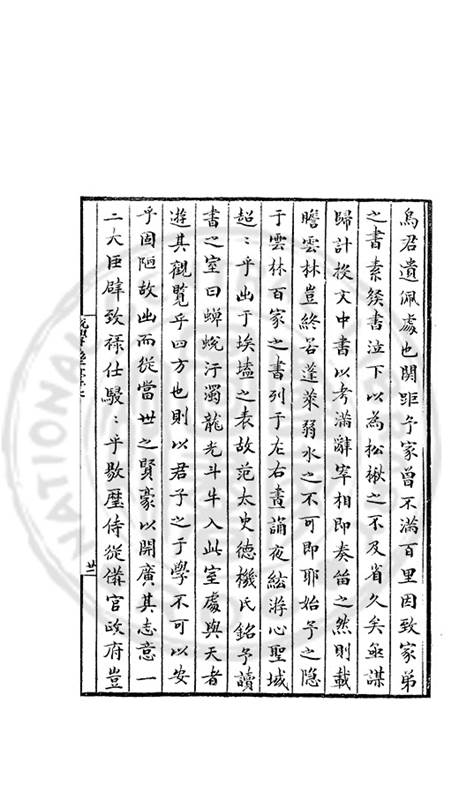 舄君遺佩處也関距予家曾不滿百里因致家弟
之書素發書泣下以為松楸之不及省久矣亟謀
歸計授文中書以考滿辭宰相即奏笛之然則載
瞻雲林豈終若蓬萊弱水之不可即耶始予之隐
于雲林百家之書列于左右晝誦夜絃游心聖域
超:乎出于埃壒之表故范太史德機氏銘予讀
書之室曰蟬蛻汙濁龍光斗牛入此室處與天者
遊其觀覽乎四方也則以君子之于學不可以安
乎固陋故出而從當世之賢豪以開廣其志意一
二大臣辟致祿仕駸:乎敭歷侍從儤官政府豈